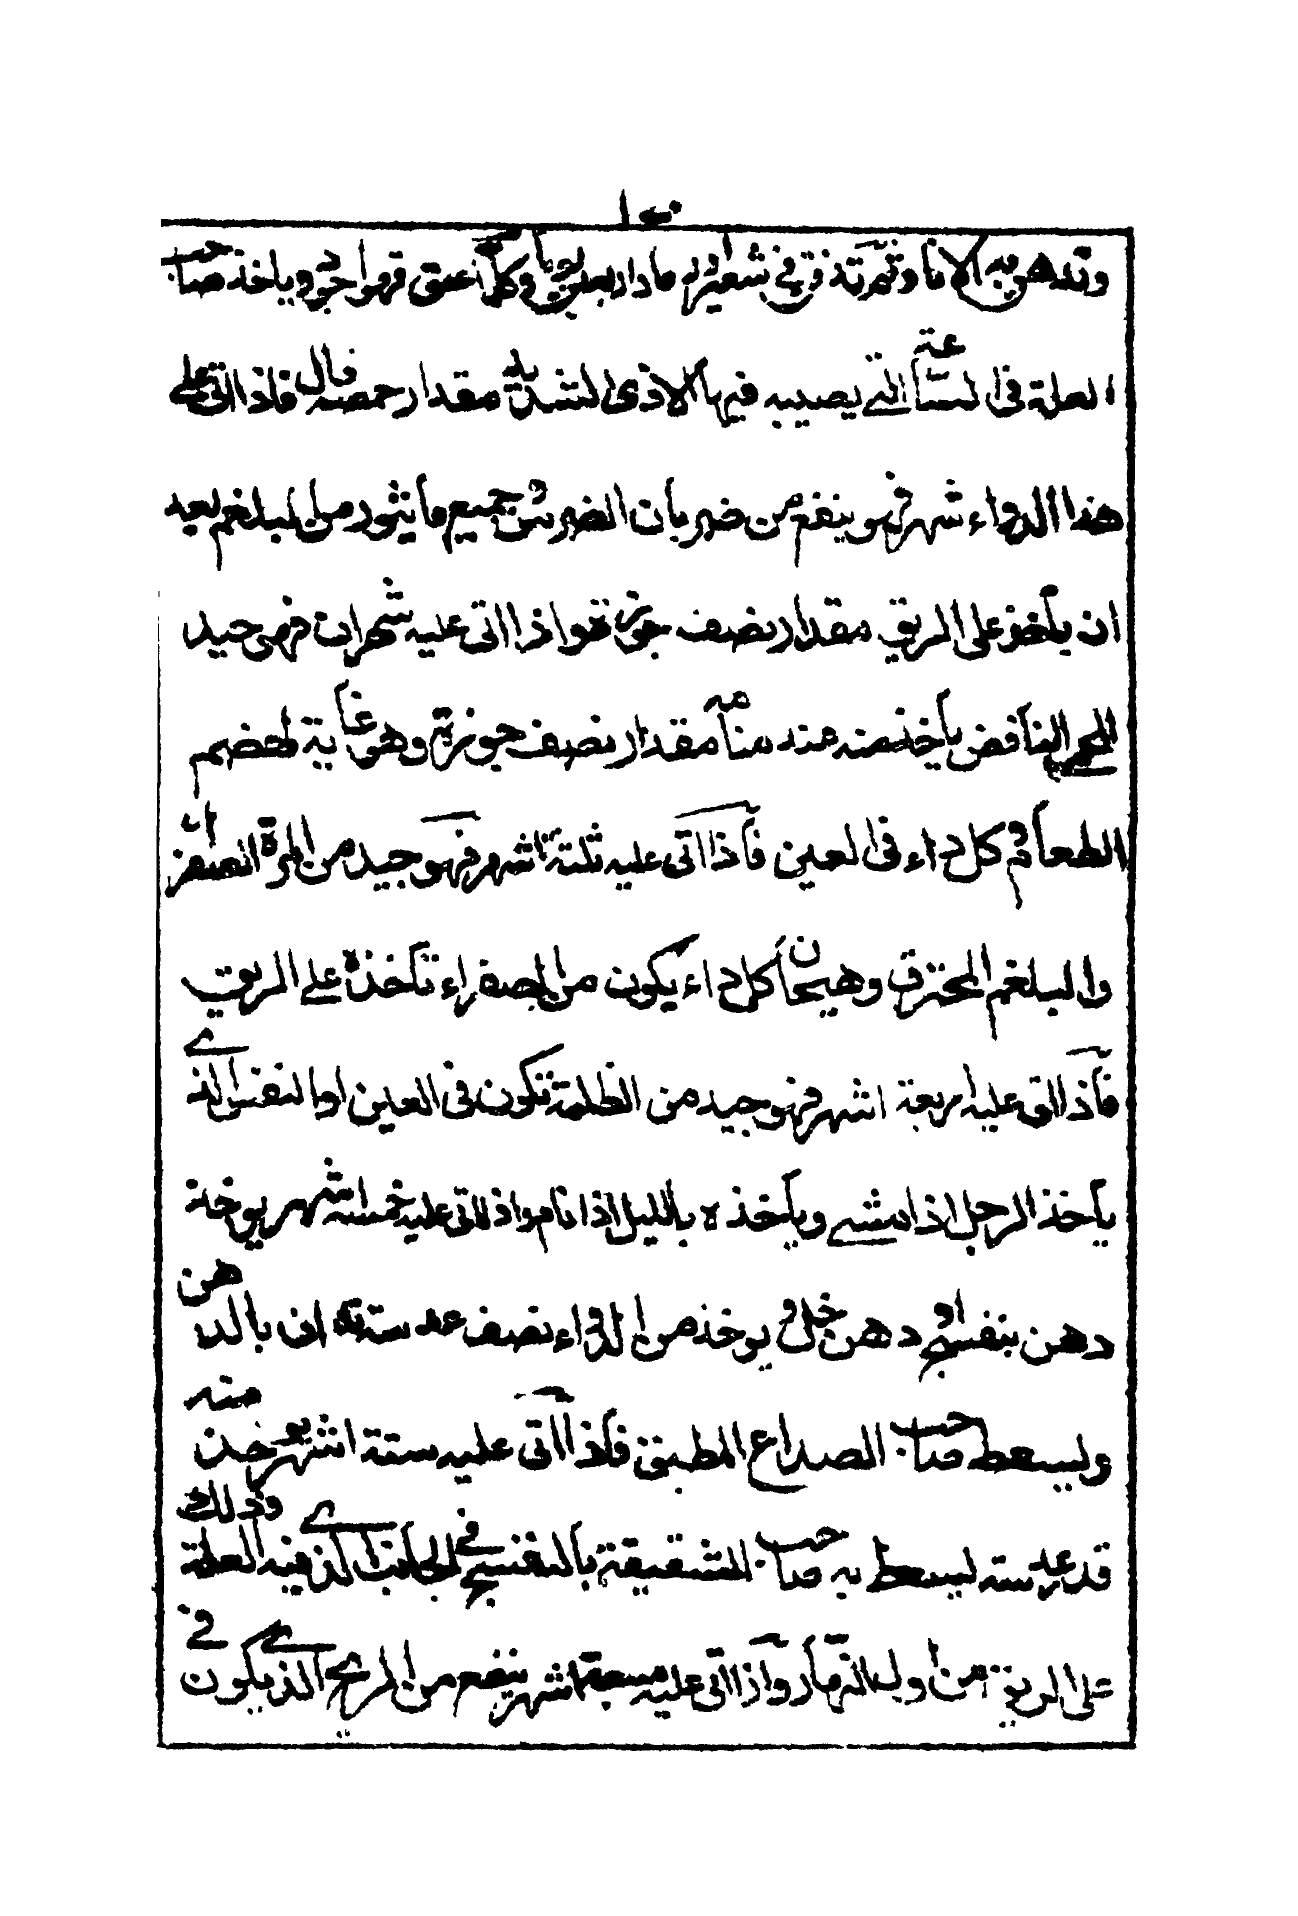 وتدهن به الاناء وتمرته في شعير مادار بعين يوما وكلما عتق فهو اجود وياخذ صاحب
العلة في الساعة التي يصيبه فيها الاذى الشديد مقدار حمصه فاذا اتى على
هذا الدواء شهر فهو ينفع من ضربان الضرس وجميع ما يثور من البلغم بعد
ان ياخذ على الريق مقدار نصف جوزة واذا اتى عليه شهران فهو جيد
للحمى النافض ياخذ منه عند منامه مقدار نصف جوزة وهو غاية لهضم
الطعام وكل داء في العين فاذا اتى عليه ثلثة اشهر فهو جيد من المرة الصفرا
والبلغم المحترق وهيجان كل داء يكون من الصفراء تاخذه على الريق
فاذا اتى عليه اربعة اشهر فهو جيد من الظلمة تكون في العين او النفس الذي
ياخذ الرجل اذا مشى وياخذه بالليل اذا نام واذا اتى عليه خمسة اشهر يوخذ
دهن بنفسج ودهن خل ويوخذ من الدواء نصف عدسة يداف بالدهن
ويسعط صاحب الصداع المطبق فاذا اتى عليه ستة اشهر يوخذ منه
قدر عدسته يسعط به صاحب الشقيقة بالبنفسج في الجانب الذي فيه العلة وذلك
على الريق من اول النهار واذا اتى عليه سبعة اشهر ينفع من الريح الذي يكون في